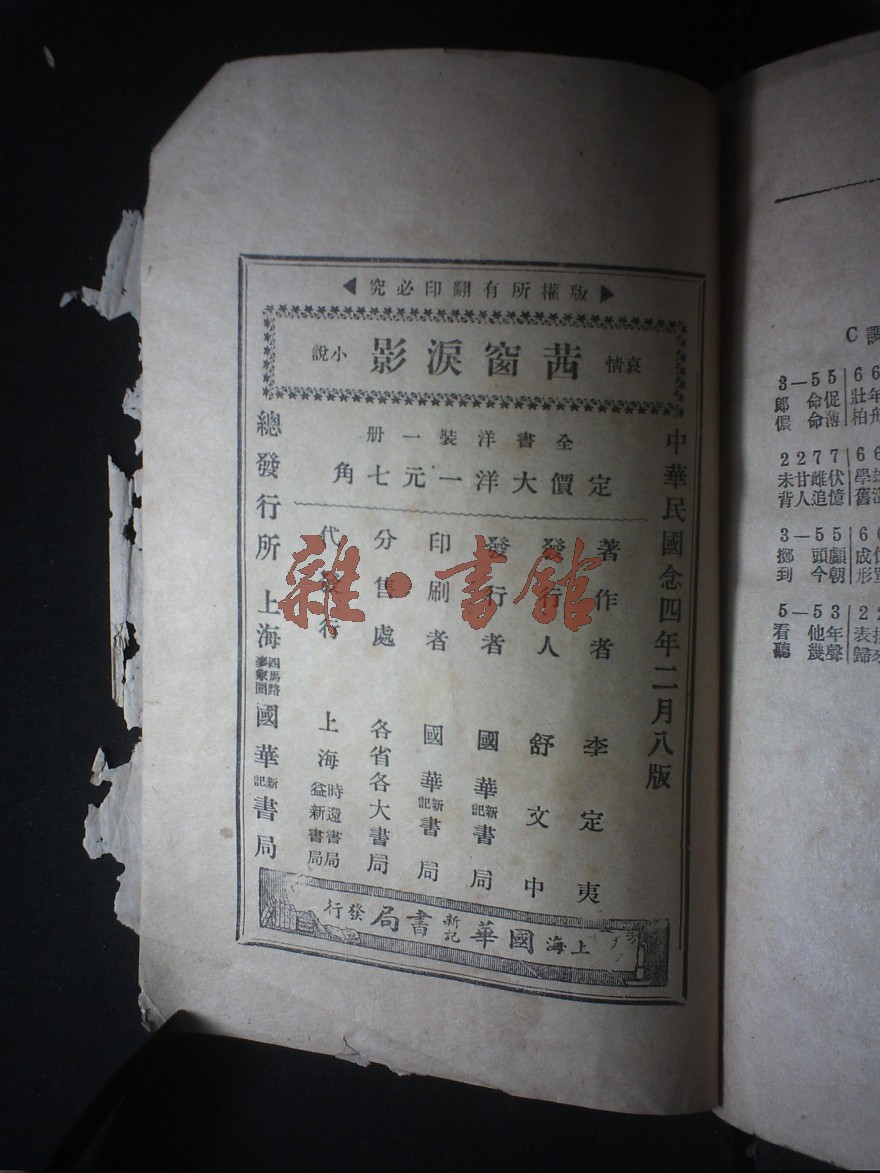 版權所有翻印必究
哀情
茜窗淚影
小說
全書洋裝一册
定價大洋一元七角
中華民國念四年二月八版
著作者 李定夷
發行人 舒文中
發行者 國華新記書局
印刷者 國華新記書局
分售處 各省各大書局
代發行 上海時還書局 益新書局
總發行所 上海四馬路麥家圈國華新記書局
上海國華新記書局發行
雜·書館
C調
3—55 66
郎命促 壯年
儂命薄 柏舟
2277 66
未甘雌伏 學
背人追憶 舊
3—55 6
擲頭顱 成
到今朝 形
5—53 22
看他年 表
聽幾聲 歸